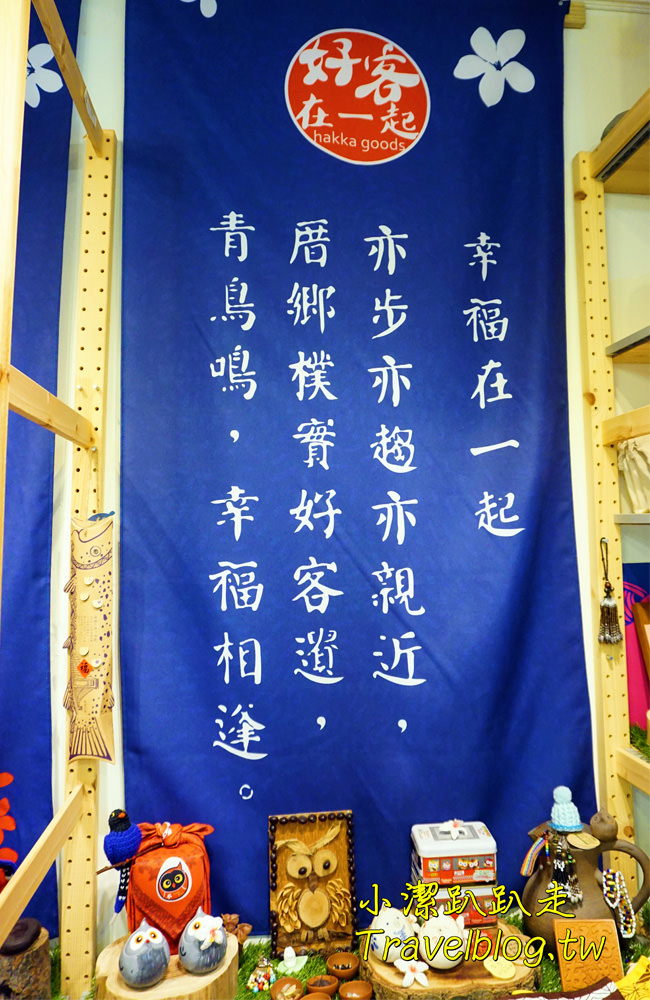 好客
在一起
hakka goods
幸福在一起
亦步亦趨亦親近，
厝鄉樸實好客選，
青鳥鳴，幸福相逢。
小潔趴趴走
Travelblog.tw